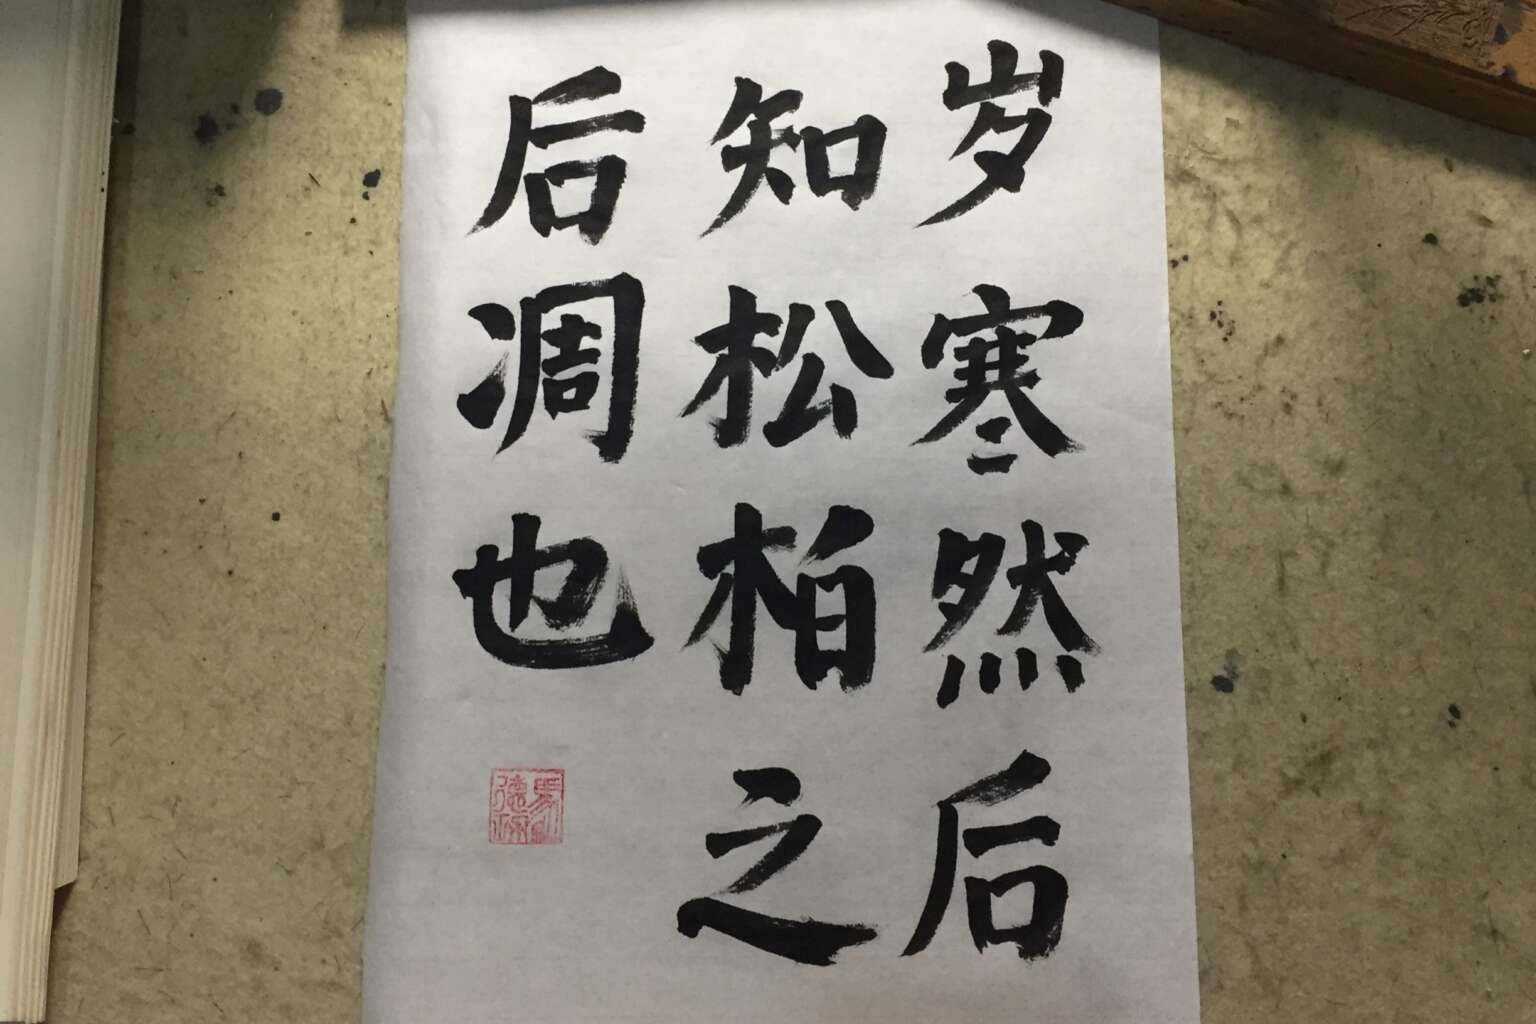 岁寒然后
知松柏之
后凋也